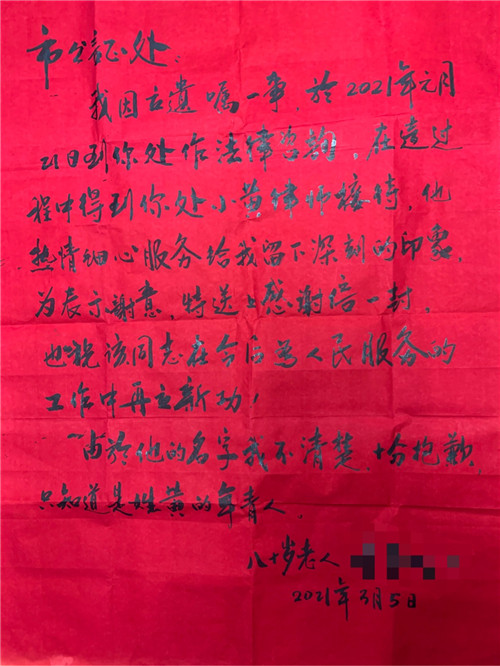 市公证处:
我因立遺嘱一事,於2021年元月
21日到你处作法律咨詢,在這过
程中得到你处小黄律师接待,他
热情细心服务给我留下深刻的印象,
为表示謝意,特送上感谢信一封,
也祝该同志在今后为人民服务的
工作中再立新功!
由於他的名字我不清楚,十分抱歉,
只知道是姓黄的年青人。
八十岁老人
2021年3月5日